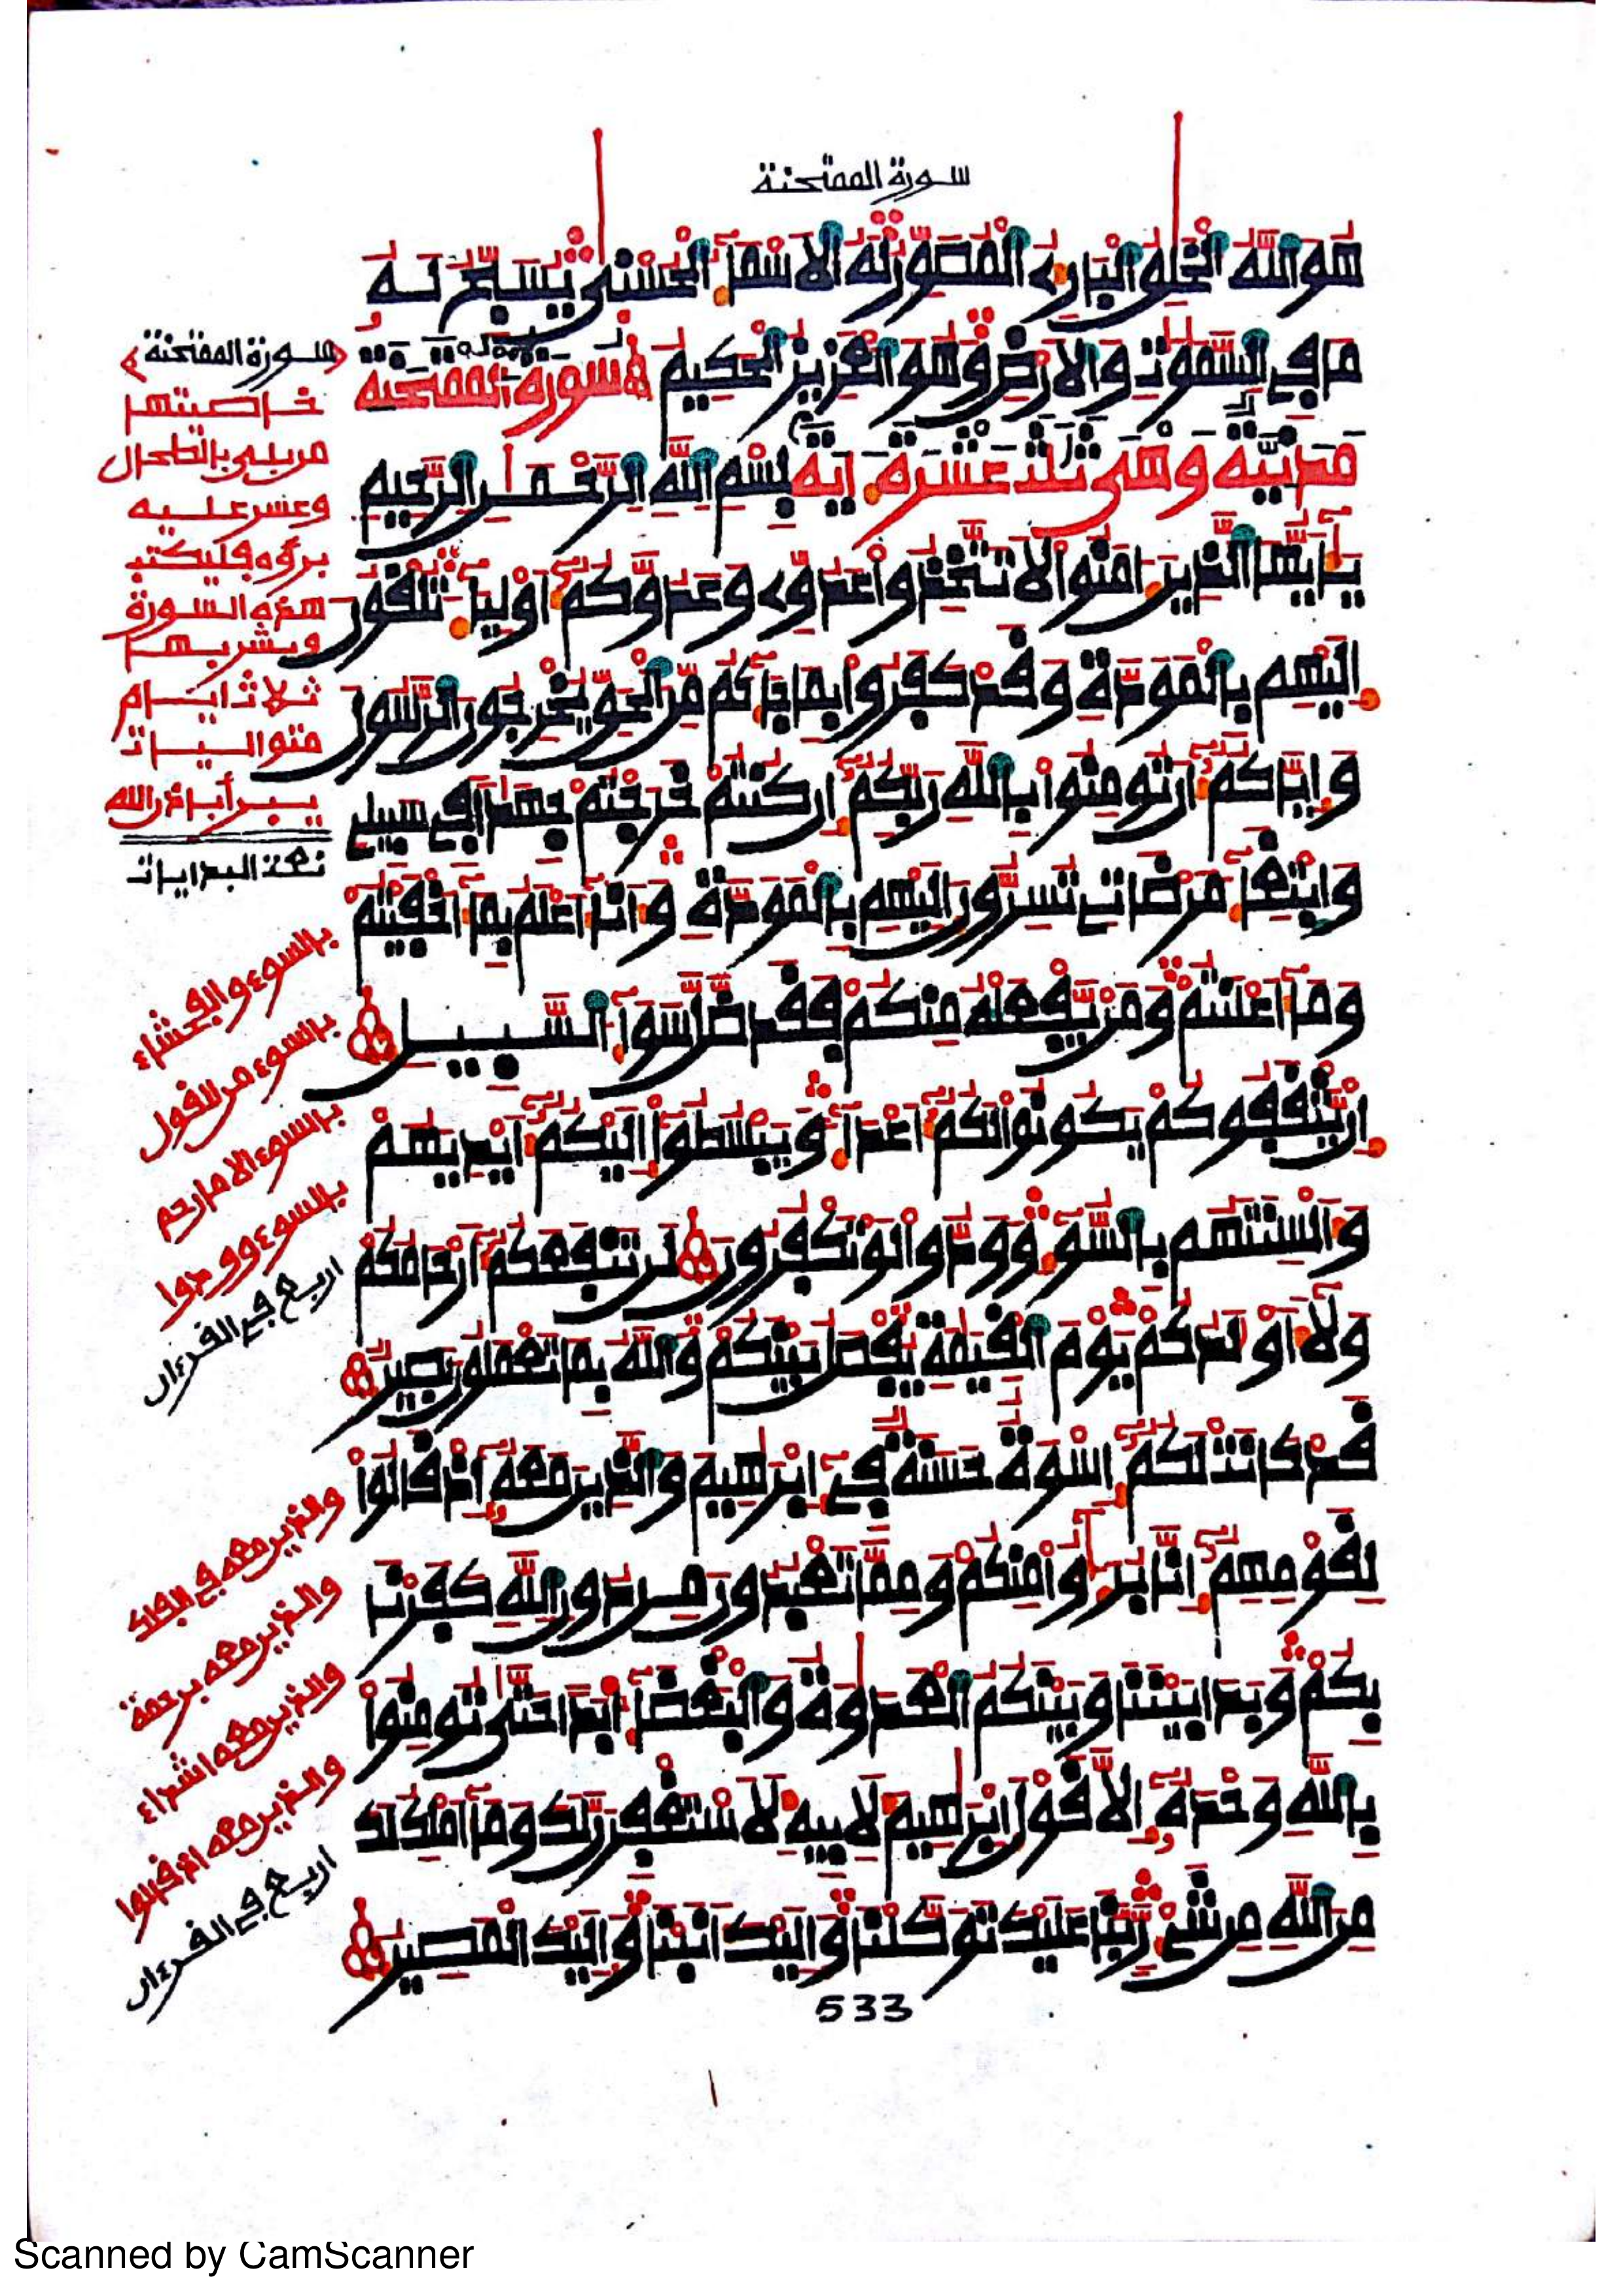 سورة الممتحنة
هُوَ اَللَّهُ اُلْخَلِقُ اُلْبَارِئُ اُلْمُصَوِّرُ لَهُ اُلَاسْمَآءُ اُلْحُسْنَىٰ يُسَبِّحُ لَهُۥ
مَا فِے اِلسَّمَٰوَٰتِ وَالَارْضِ وَهُوَ اَلْعَزِيزُ اُلْحَكِيمُ سورة الممتحنة
مدنية وهى ثلث عشرة ءاية بِسْمِ اِللَّهِ اِلرَّحْمَٰنِ اِلرَّحِيمِ
يَٰٓأَيُّهَا اَلذِينَ ءَامَنُوا لَا تَتَّخِذُوا عَدُوِّے وَعَدُوَّكُمُۥٓ أَوْلِيَآءَ تُلْقُونَ
إِلَيْهِم بِالْمَوَدَّةِ وَقَدْ كَفَرُوا بِمَا جَآءَكُم مِّنَ اَلْحَقِّ يُخْرِجُونَ اَلرَّسُولَ
وَإِيَّاكُمُۥٓ أَن تُومِنُوا بِاللَّهِ رَبِّكُمُۥٓ إِن كُنتُمْ خَرَجْتُمْ جِهَٰدا فِے سَبِيلِے
وَابْتِغَآءَ مَرْضَاتِے تُسِرُّونَ إِلَيْهِم بِالْمَوَدَّةِ وَأَنَا أَعْلَمُ بِمَآ أَخْفَيْتُمْ
وَمَآ أَعْلَنتُمْ وَمَنْ يَّفْعَلْهُ مِنكُمْ فَقَد ضَّلَّ سَوَآءَ اَلسَّبِيلِ
إِنْ يَّثْقَفُوكُمْ يَكُونُوا لَكُمُۥٓ أَعْدَآءً وَيَبْسُطُوٓا إِلَيْكُمُۥٓ أَيْدِيَهُمْ
وَأَلْسِنَتَهُم بِالسُّوٓءِ وَوَدُّوا لَوْ تَكْفُرُونَ لَن تَنفَعَكُمُۥٓ أَرْحَامُكُمْ
وَلَآ أَوْلَٰدُكُمْ يَوْمَ اَلْقِيَٰمَةِ يُفْصَلُ بَيْنَكُمْ وَاللَّهُ بِمَا تَعْمَلُونَ بَصِيرٌ
قَدْ كَانَتْ لَكُمُۥٓ إِسْوَةٌ حَسَنَةٌ فِےٓ إِبْرَٰهِيمَ وَالذِينَ مَعَهُۥٓ إِذْ قَالُوا
لِقَوْمِهِمُۥٓ إِنَّا بُرَءَٰٓؤُا مِنكُمْ وَمِمَّا تَعْبُدُونَ مِن دُونِ اِللَّهِ كَفَرْنَا
بِكُمْ وَبَدَا بَيْنَنَا وَبَيْنَكُمُ اُلْعَدَٰوَةُ وَالْبَغْضَآءُ ابَداً حَتَّىٰ تُومِنُوا
بِاللَّهِ وَحْدَهُۥٓ إِلَّا قَوْلَ إِبْرَٰهِيمَ لِأَبِيهِ لَأَسْتَغْفِرَنَّ لَكَ وَمَآ أَمْلِكُ لَكَ
مِنَ اَللَّهِ مِن شَےْءٍ رَّبَّنَا عَلَيْكَ تَوَكَّلْنَا وَإِلَيْكَ أَنَبْنَا وَإِلَيْكَ اَلْمَصِيرُ
533
﴿سورة الممتحنة﴾
خاصيتها
من بلى بالطحال
وعسر عليه
برؤه فليكتب
هذه السورة
ويشربها
ثلاث ايام
متواليات
يبرأ باذن الله
تمت البدايات
بالسوء والفحشاء
بالسوء من القول
بالسوء الا ما رحم
بالسوء وودوا
اربع في القرءان
والذين معه في الفلك
والذين معه برحمة
والذين معه اشداء
والذين معه اذ قالوا
اربع في القرءان
Scanned by CamScanner